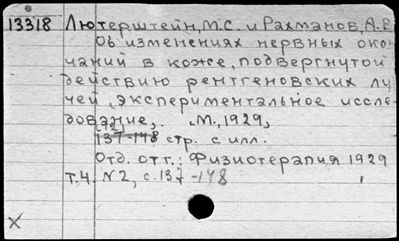 13318 Лютерштейн, М.С. и Рахманов, А.В
Об изменениях нервных окон
чаний в коже, подвергнутой
действию рентгеновских лу
чей, экспериментальное иссле-
дование, М., 1929,
(12)
137-148 стр. с илл.
Отд. отт.: Физиотерапия 1929
т.4. N2, с. 137-148